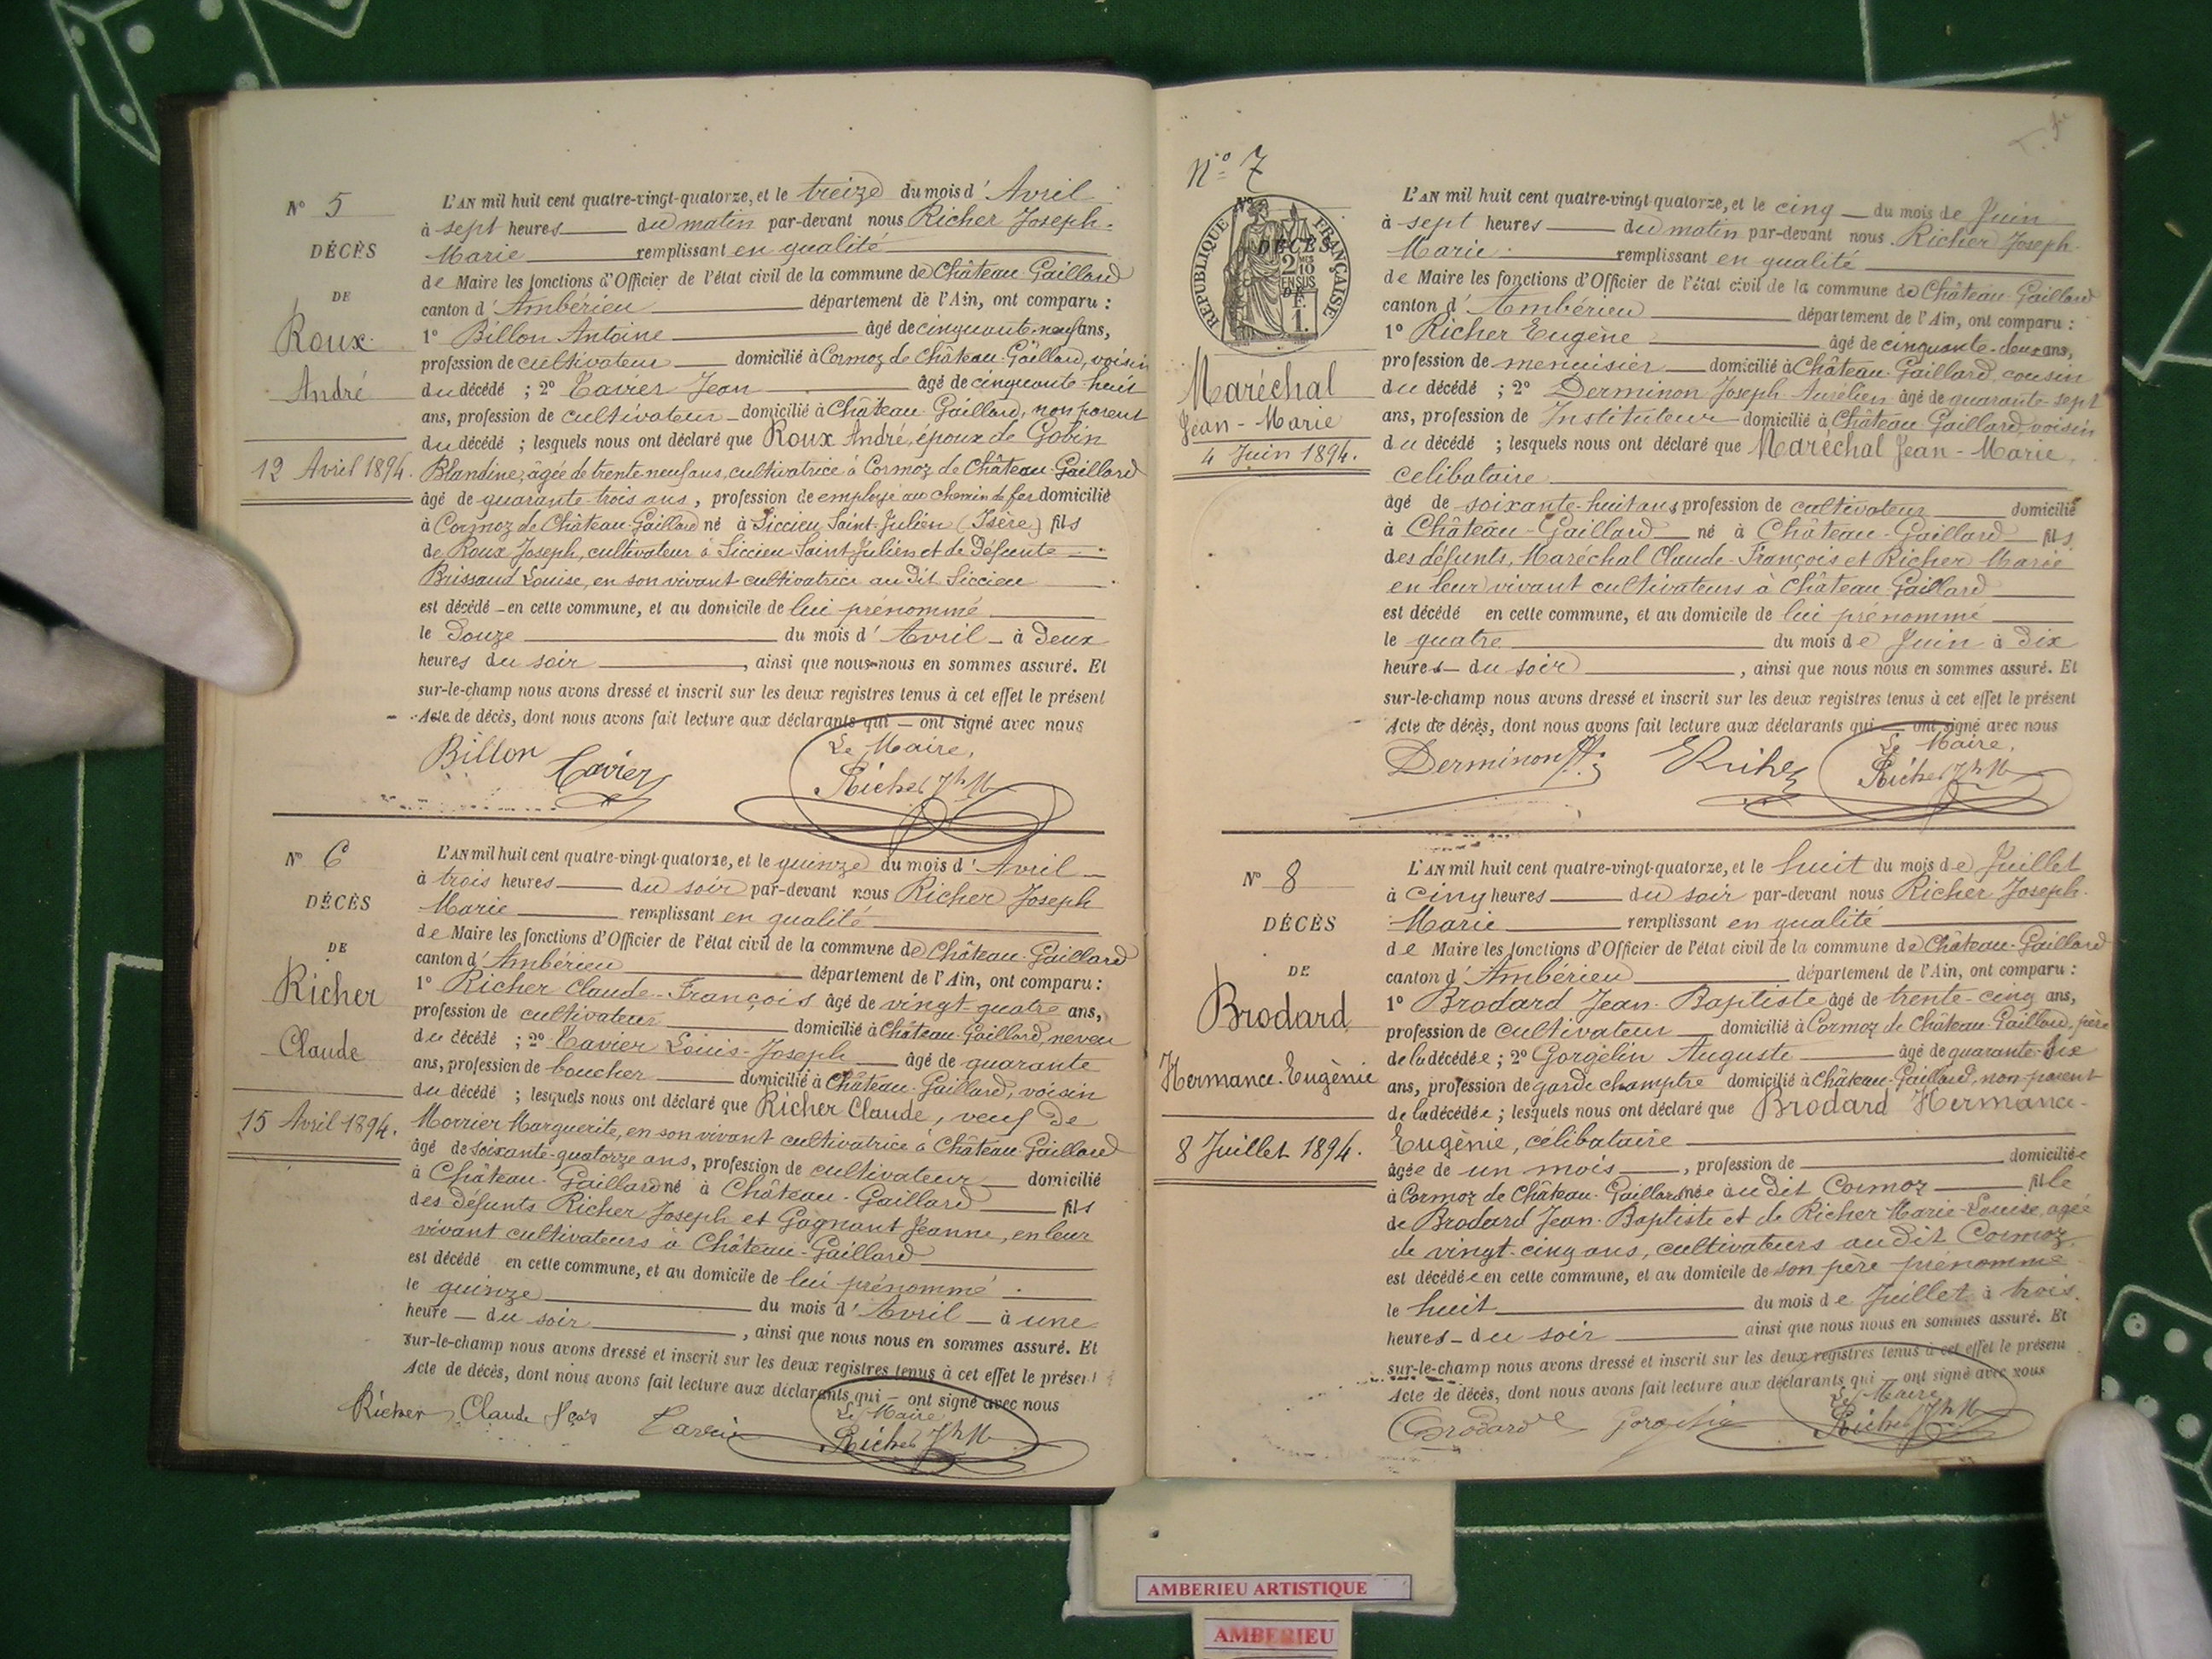 N° 5
DÉCÈS
DE
Roux
André
12 Avril 1894.
L'AN mil huit cent quatre-vingt-quatorze, et le treize du mois d' Avril
à sept heures du matin par-devant nous Richer Joseph-
Marie remplissant en qualité
de Maire les fonctions d'Officier de l'état civil de la commune de Château-Gaillard
canton d' Ambérieu département de l'Ain, ont comparu :
1° Billon Antoine âgé de cinquante-neuf ans,
profession de cultivateur domicilié à Cormoz de Château-Gaillard, voisin
du décédé ; 2° Tavier Jean âgé de cinquante-huit
ans, profession de cultivateur domicilié à Château-Gaillard, non parent
du décédé ; lesquels nous ont déclaré que Roux André, époux de Gobin
Blandine, âgée de trente-neuf ans, cultivatrice à Cormoz de Château-Gaillard
âgé de quarante-trois ans, profession de employé au chemin de fer domicilié
à Cormoz de Château-Gaillard né à Siccieu Saint-Julien (Isère) fils
de Roux Joseph, cultivateur à Siccieu-Saint-Julien et de Défunte
Brissaud Louise, en son vivant cultivatrice au dit Siccieu
est décédé en cette commune, et au domicile de lui prénommé
le douze du mois d' Avril à deux
heures du soir, ainsi que nous nous en sommes assuré. Et
sur-le-champ nous avons dressé et inscrit sur les deux registres tenus à cet effet le présent
Acte de décès, dont nous avons fait lecture aux déclarants qui ont signé avec nous
Billon Tavier Le Maire,
Richer Jh M
N° 6
DÉCÈS
DE
Richer
Claude
15 Avril 1894.
L'AN mil huit cent quatre-vingt-quatorze, et le quinze du mois d' Avril
à trois heures du soir par-devant nous Richer Joseph
Marie remplissant en qualité
de Maire les fonctions d'Officier de l'état civil de la commune de Château-Gaillard
canton d' Ambérieu département de l'Ain, ont comparu :
1° Richer Claude-François âgé de vingt-quatre ans,
profession de cultivateur domicilié à Château-Gaillard, neveu
du décédé ; 2° Tavier Louis-Joseph âgé de quarante
ans, profession de boucher domicilié à Château-Gaillard, voisin
du décédé ; lesquels nous ont déclaré que Richer Claude, veuf de
Morrier Marguerite, en son vivant cultivatrice à Château-Gaillard
âgé de soixante-quatorze ans, profession de cultivateur domicilié
à Château-Gaillard né à Château-Gaillard fils
des défunts Richer Joseph et Gagnant Jeanne, en leur
vivant cultivateurs à Château-Gaillard
est décédé en cette commune, et au domicile de lui prénommé
le quinze du mois d' Avril à une
heure du soir, ainsi que nous nous en sommes assuré. Et
sur-le-champ nous avons dressé et inscrit sur les deux registres tenus à cet effet le présent
Acte de décès, dont nous avons fait lecture aux déclarants qui ont signé avec nous
Richer Claude fçois Tavier Le Maire,
Richer Jh M
N° 7
N°
RÉPUBLIQUE FRANÇAISE
DÉCÈS
2 MES 10
EN SUS
DE
F.
1.
Maréchal
Jean-Marie
4 Juin 1894.
L'AN mil huit cent quatre-vingt quatorze, et le cinq du mois de Juin
à sept heures du matin par-devant nous Richer Joseph-
Marie remplissant en qualité
de Maire les fonctions d'Officier de l'état civil de la commune de Château-Gaillard
canton d' Ambérieu département de l'Ain, ont comparu :
1° Richer Eugène âgé de cinquante-deux ans,
profession de menuisier domicilié à Château-Gaillard, cousin
du décédé ; 2° Derminon Joseph-Aurélien âgé de quarante-sept
ans, profession de Instituteur domicilié à Château-Gaillard, voisin
du décédé ; lesquels nous ont déclaré que Maréchal Jean-Marie,
celibataire
âgé de soixante-huit ans profession de cultivateur domicilié
à Château-Gaillard né à Château-Gaillard fils
des défunts, Maréchal Claude-François et Richer Marie
en leur vivant cultivateurs à Château-Gaillard
est décédé en cette commune, et au domicile de lui prénommé
le quatre du mois de Juin à dix
heures du soir, ainsi que nous nous en sommes assuré. Et
sur-le-champ nous avons dressé et inscrit sur les deux registres tenus à cet effet le présent
Acte de décès, dont nous avons fait lecture aux déclarants qui ont signé avec nous
Derminon E Richer Le Maire,
Richer Jh M
N° 8
DÉCÈS
DE
Brodard
Hermance-Eugénie
8 Juillet 1894.
L'AN mil huit cent quatre-vingt-quatorze, et le huit du mois de Juillet
à cinq heures du soir par-devant nous Richer Joseph-
Marie remplissant en qualité
de Maire les fonctions d'Officier de l'état civil de la commune de Château-Gaillard
canton d' Ambérieu département de l'Ain, ont comparu :
1° Brodard Jean-Baptiste âgé de trente-cinq ans,
profession de cultivateur domicilié à Cormoz de Château-Gaillard, père
de la décédée ; 2° Gorgelin Auguste âgé de quarante-six
ans, profession de garde champtre domicilié à Château-Gaillard, non parent
de la décédée ; lesquels nous ont déclaré que Brodard Hermance-
Eugénie, célibataire
âgée de un mois, profession de domiciliée
à Cormoz de Château-Gaillard née à udit Cormoz fille
de Brodard Jean-Baptiste et de Richer Marie-Louise, agée
de vingt-cinq ans, cultivateurs au dit Cormoz
est décédée en cette commune, et au domicile de son père prénommé
le huit du mois de Juillet à trois
heures du soir ainsi que nous nous en sommes assuré. Et
sur-le-champ nous avons dressé et inscrit sur les deux registres tenus à cet effet le présent
Acte de décès, dont nous avons fait lecture aux déclarants qui ont signé avec nous
Brodard Gorgelin Le Maire
Richer Jh M
AMBERIEU ARTISTIQUE
AMBERIEU